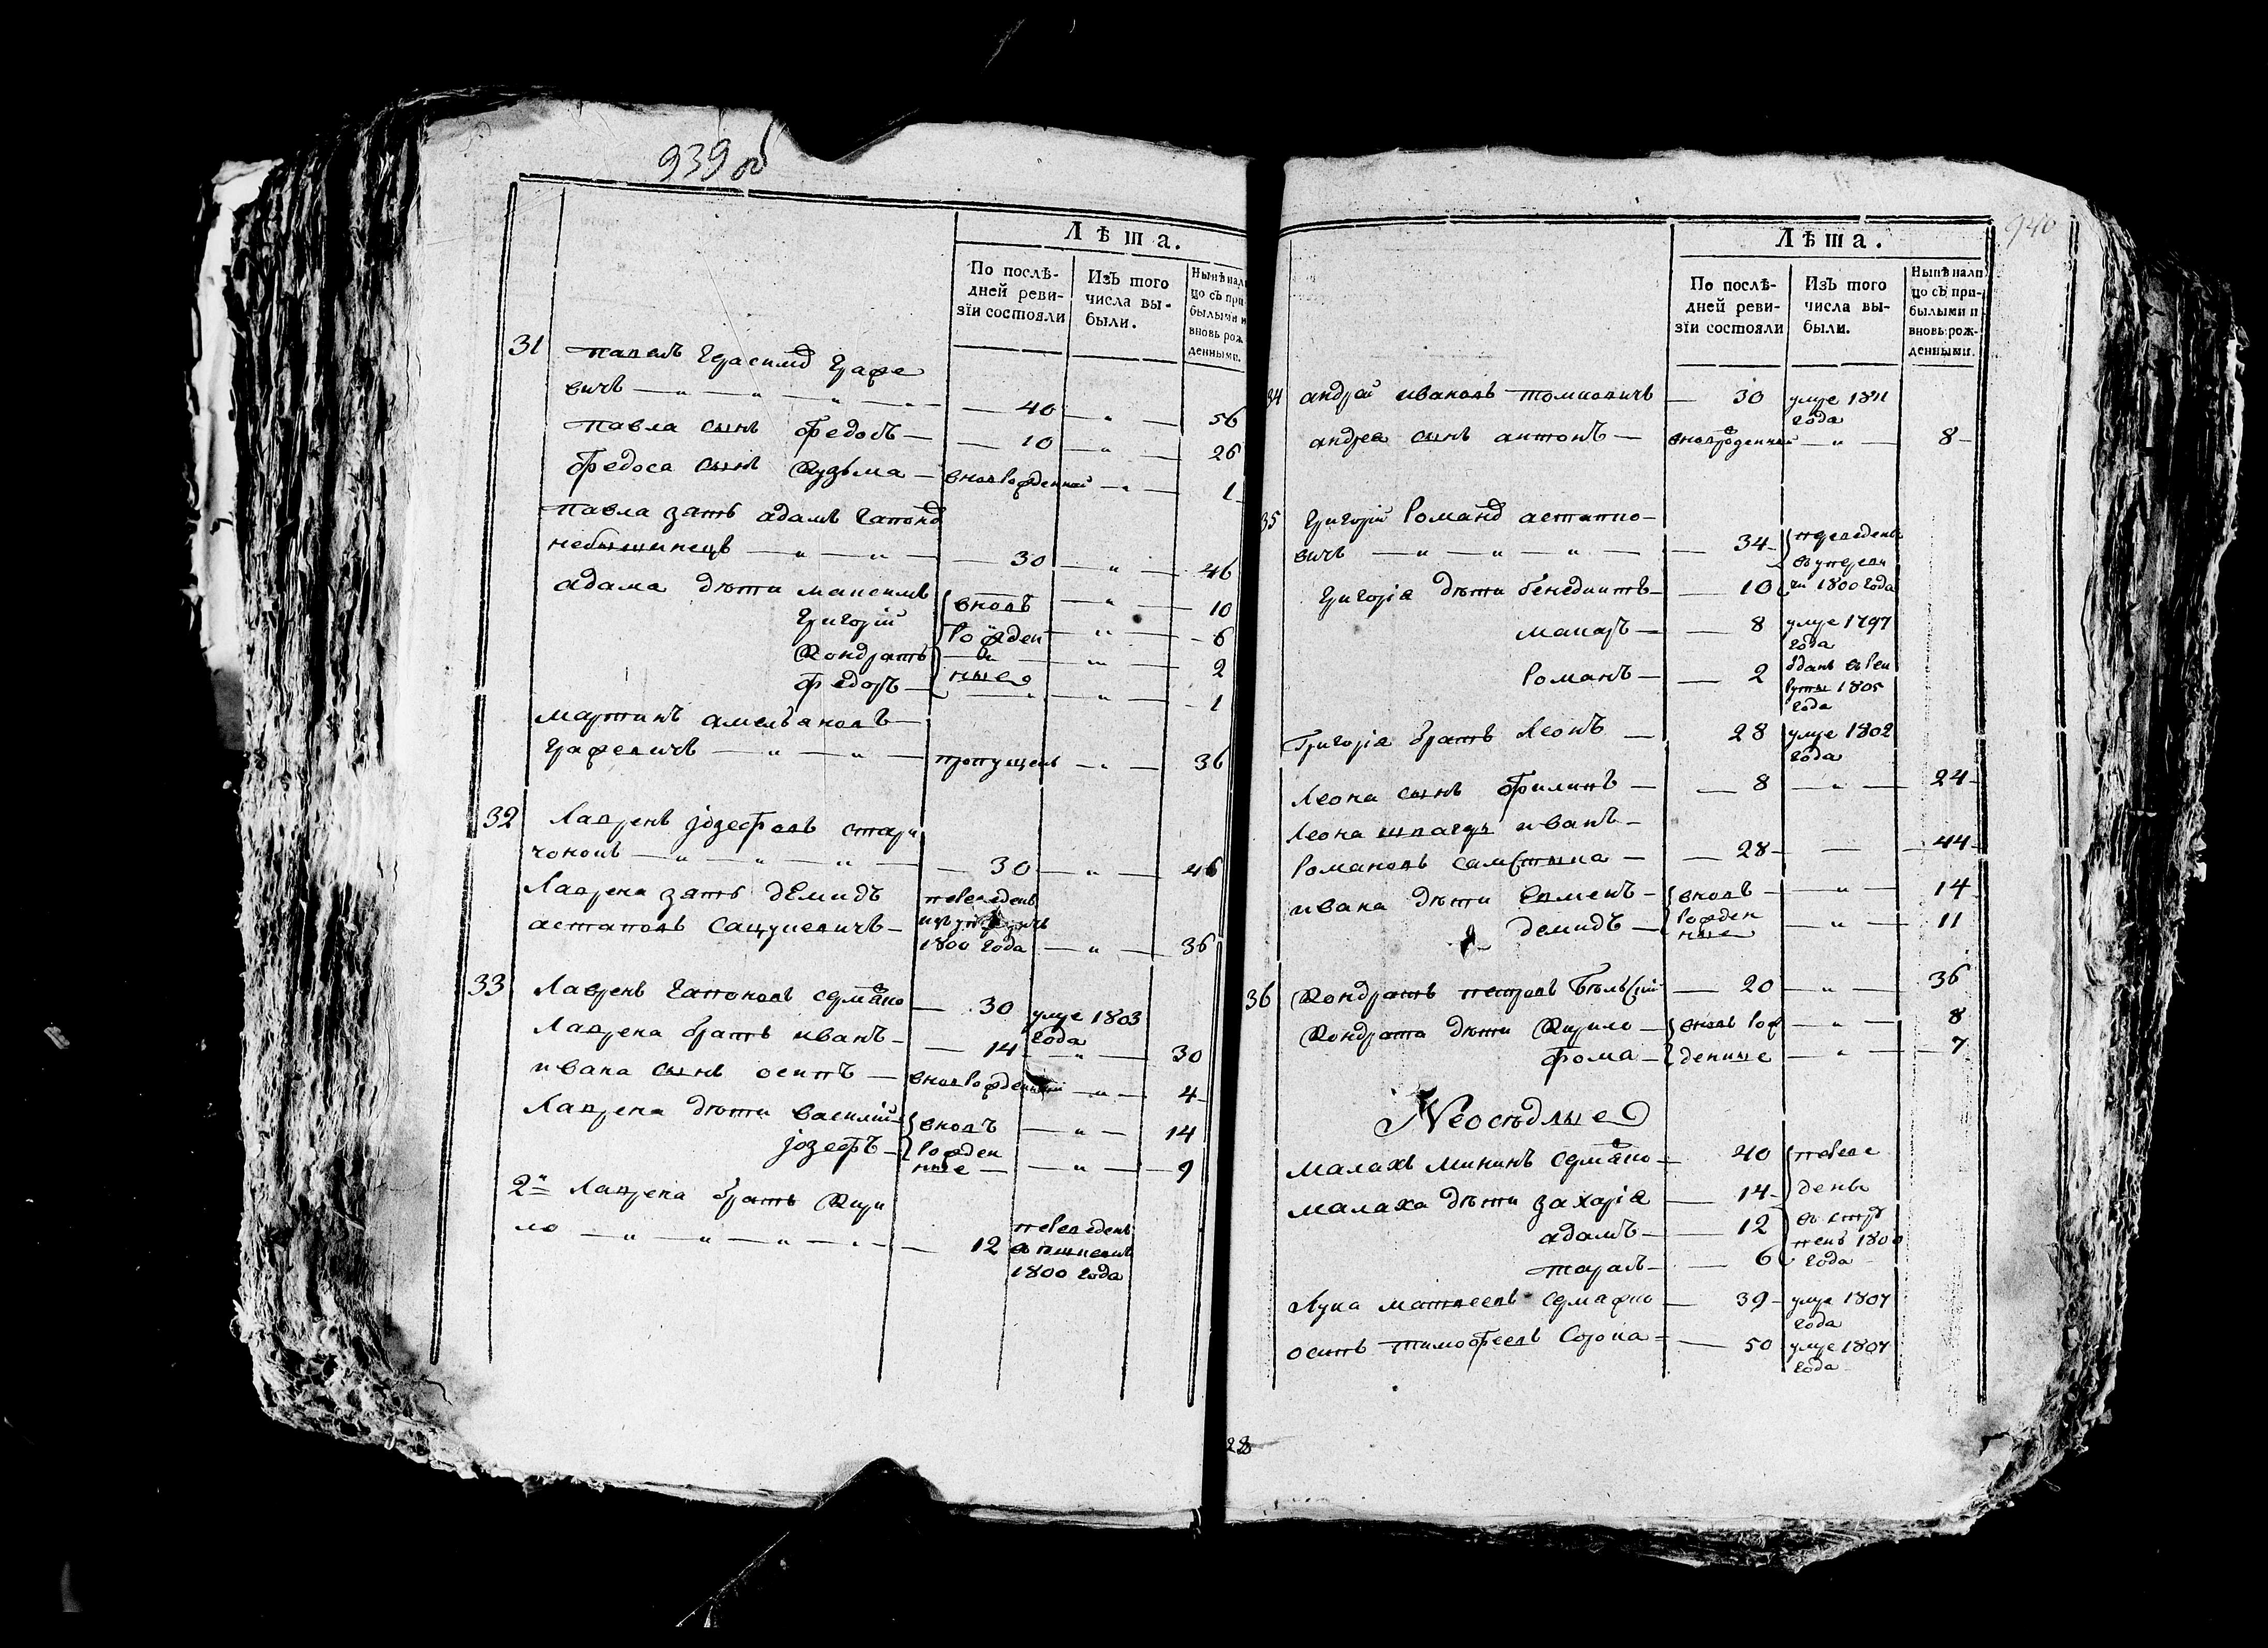 939 об
Лѣта.
По послѣ-
дней реви-
зіи состояли
Изъ того
числа вы-
были.
Нынѣ нали
цо съ при
былыми и
вновь рож
денными.
31 павелъ Герасимов Граже
вичъ — „ — „ — „ — 40 — „ — 56
павла сынъ Федосъ — 10 — „ — 26
Федоса сынъ Кузьма — вновьрожденный — „ — 1
павла зять адамъ Гапонов
— „ — „ — 30 — „ — 46
адама дѣти максимъ вновь — „ — 10
Григорій рожден — „ — 6
Кондратъ — „ — 2
Федоръ — ные — „ — 1
мартинъ амельяновъ
Гражевичъ — „ — „ — пропущенъ — „ — 36
32 Лавренъ Јозефовъ стари
чонокъ — „ — „ — „ — 30 — „ — 46
Лаврена зять демидъ переведенъ
астаповъ Сацукевичъ — изъ
1800 года — „ — 36
33 Лавренъ Гапоновъ сермяжко — 30 умре 1803
года
Лаврена братъ иванъ — 14 — „ — 30
ивана сынъ осипъ — вновьрожденный — „ — 4
Лаврена дѣти василій вновь — „ — 14
Јозефъ — рожден
ные — „ — 9
2й Лаврена братъ Кири
ло — „ — „ — „ — „ — 12 переведенъ
1800 года
940
Лѣта.
По послѣ-
дней реви-
зіи состояли
Изъ того
числа вы-
были.
Нынѣ нали
цо съ при-
былыми и
вновь рож-
денными.
34 андрей ивановъ томковичъ — 30 умре 1811
года
андрея сынъ антонъ — вновьрожденный — „ — 8
35 Григорій Романов астапко-
вичъ — „ — „ — „ — 34 переведенъ
Григорія дѣти бенедиктъ — 10 1800 года
макаръ — 8 умре 1797
года
Романъ — 2 отданъ въ рек
руты 1805
года
Григорія братъ Леонъ — 28 умре 1802
года
Леона сынъ Филипъ — 8 — „ — 24
Леона швагеръ иванъ —
Романовъ самстыка — 28 — 44
ивана дѣти Евменъ — вновь — „ — 14
демидъ — рожден
ные — „ — 11
36 Кондратъ петровъ Бѣльскій — 20 — „ — 36
Кондрата дѣти Кирило — вновь рож — „ — 8
фома — денные — „ — 7
Неосѣдлые
малахъ мининъ сермяжко — 40 переве
малаха дѣти захарія — 14 денъ
адамъ — 12
тарасъ — 6 1800 года
Лука матвеевъ сермяжко — 39 умре 1807
года
осипъ тимофеевъ Сорока — 50 умре 1807
года
28